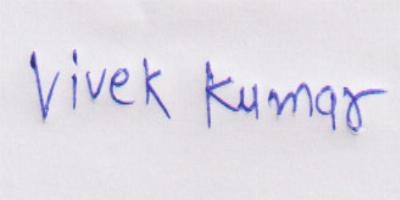 Vivek Kumar